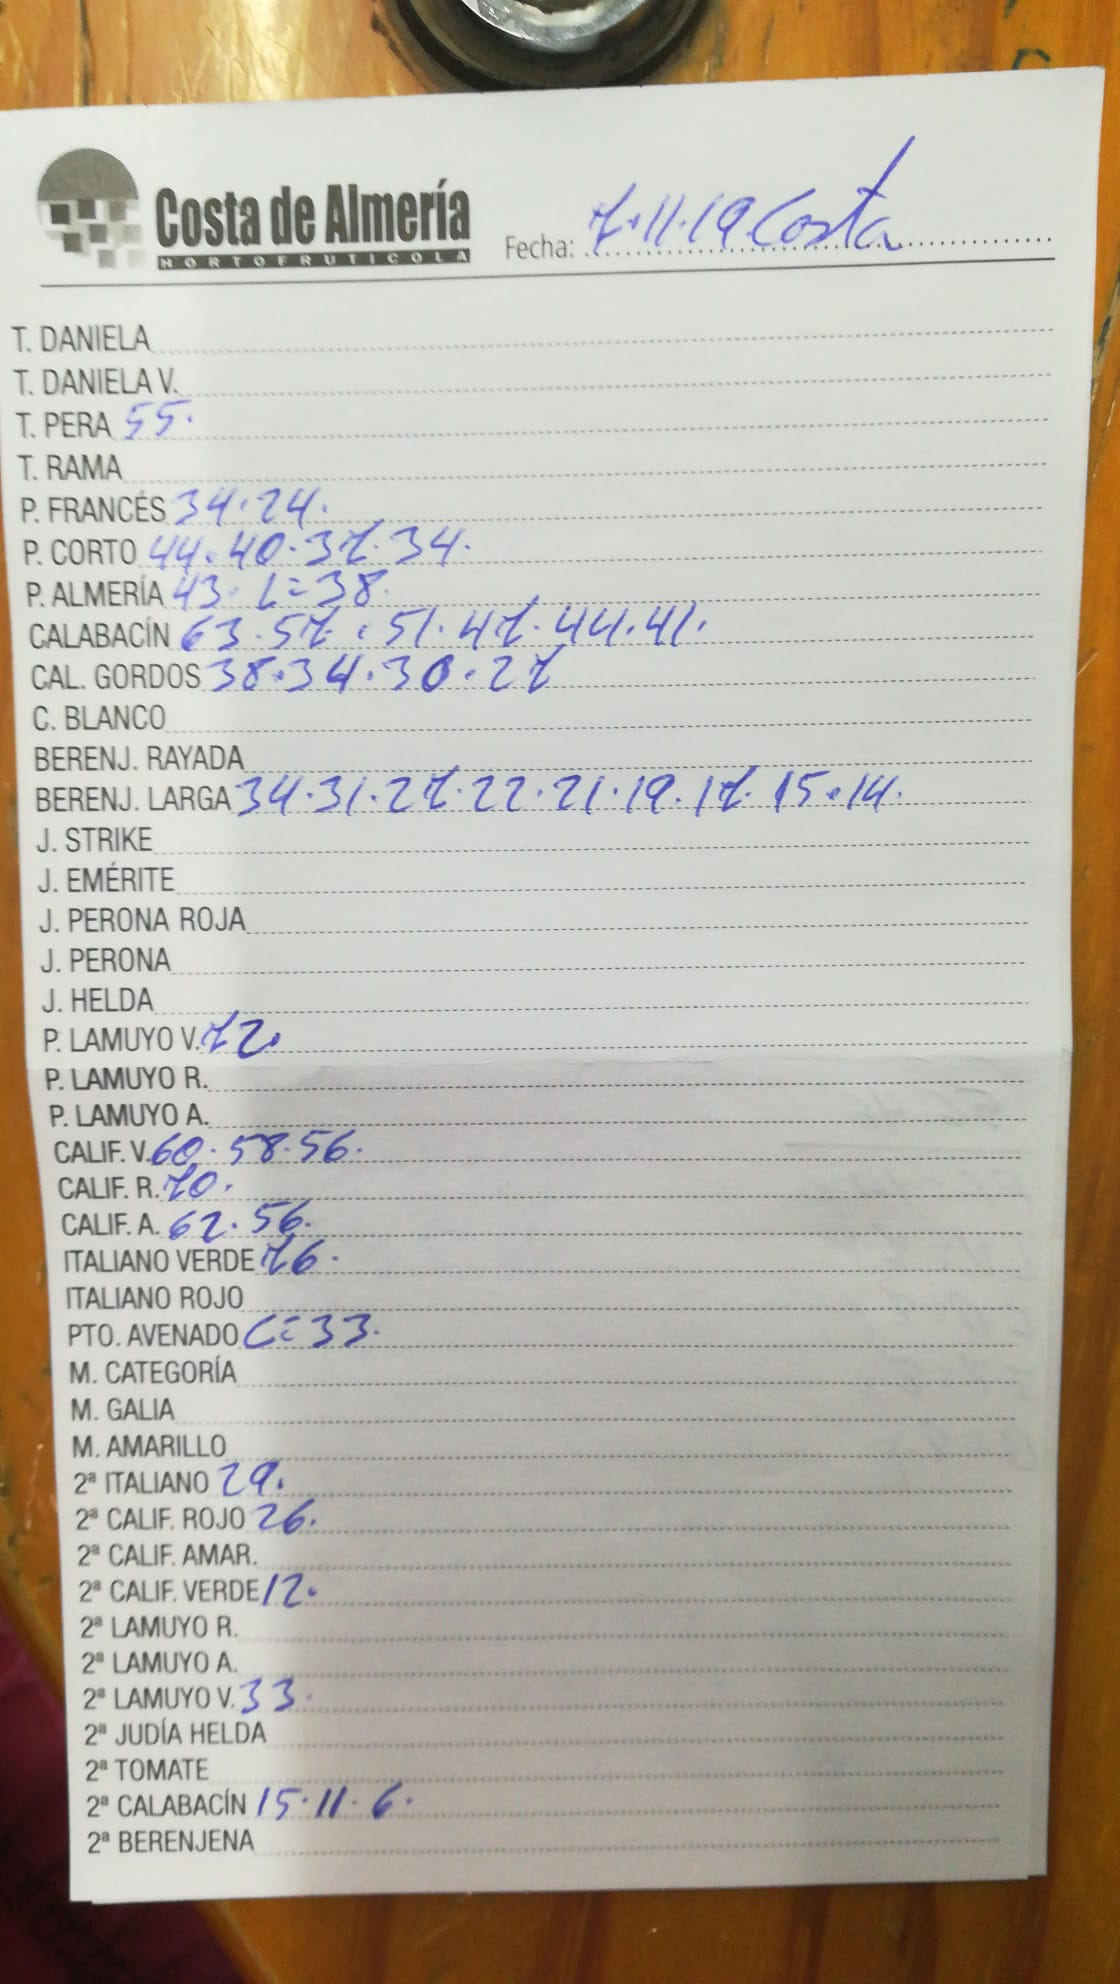 Costa de Almería
HORTOFRUTICOLA
Fecha: 7.11.19 Costa
T. DANIELA
T. DANIELA V.
T. PERA 55.
T. RAMA
P. FRANCÉS 34.24.
P. CORTO 44.40.37.34.
P. ALMERÍA 43. L=38.
CALABACÍN 63.57.51.47.44.41.
CAL. GORDOS 38.34.30.27
C. BLANCO
BERENJ. RAYADA
BERENJ. LARGA 34.31.27.22.21.19.17.15.14.
J. STRIKE
J. EMÉRITE
J. PERONA ROJA
J. PERONA
J. HELDA
P. LAMUYO V. 72.
P. LAMUYO R.
P. LAMUYO A.
CALIF. V. 60.58.56.
CALIF. R. 70.
CALIF. A. 62.56.
ITALIANO VERDE 76.
ITALIANO ROJO
PTO. AVENADO C=33.
M. CATEGORÍA
M. GALIA
M. AMARILLO
2ª ITALIANO 29.
2ª CALIF. ROJO 26.
2ª CALIF. AMAR.
2ª CALIF. VERDE 12.
2ª LAMUYO R.
2ª LAMUYO A.
2ª LAMUYO V. 33.
2ª JUDÍA HELDA
2ª TOMATE
2ª CALABACÍN 15.11.6.
2ª BERENJENA